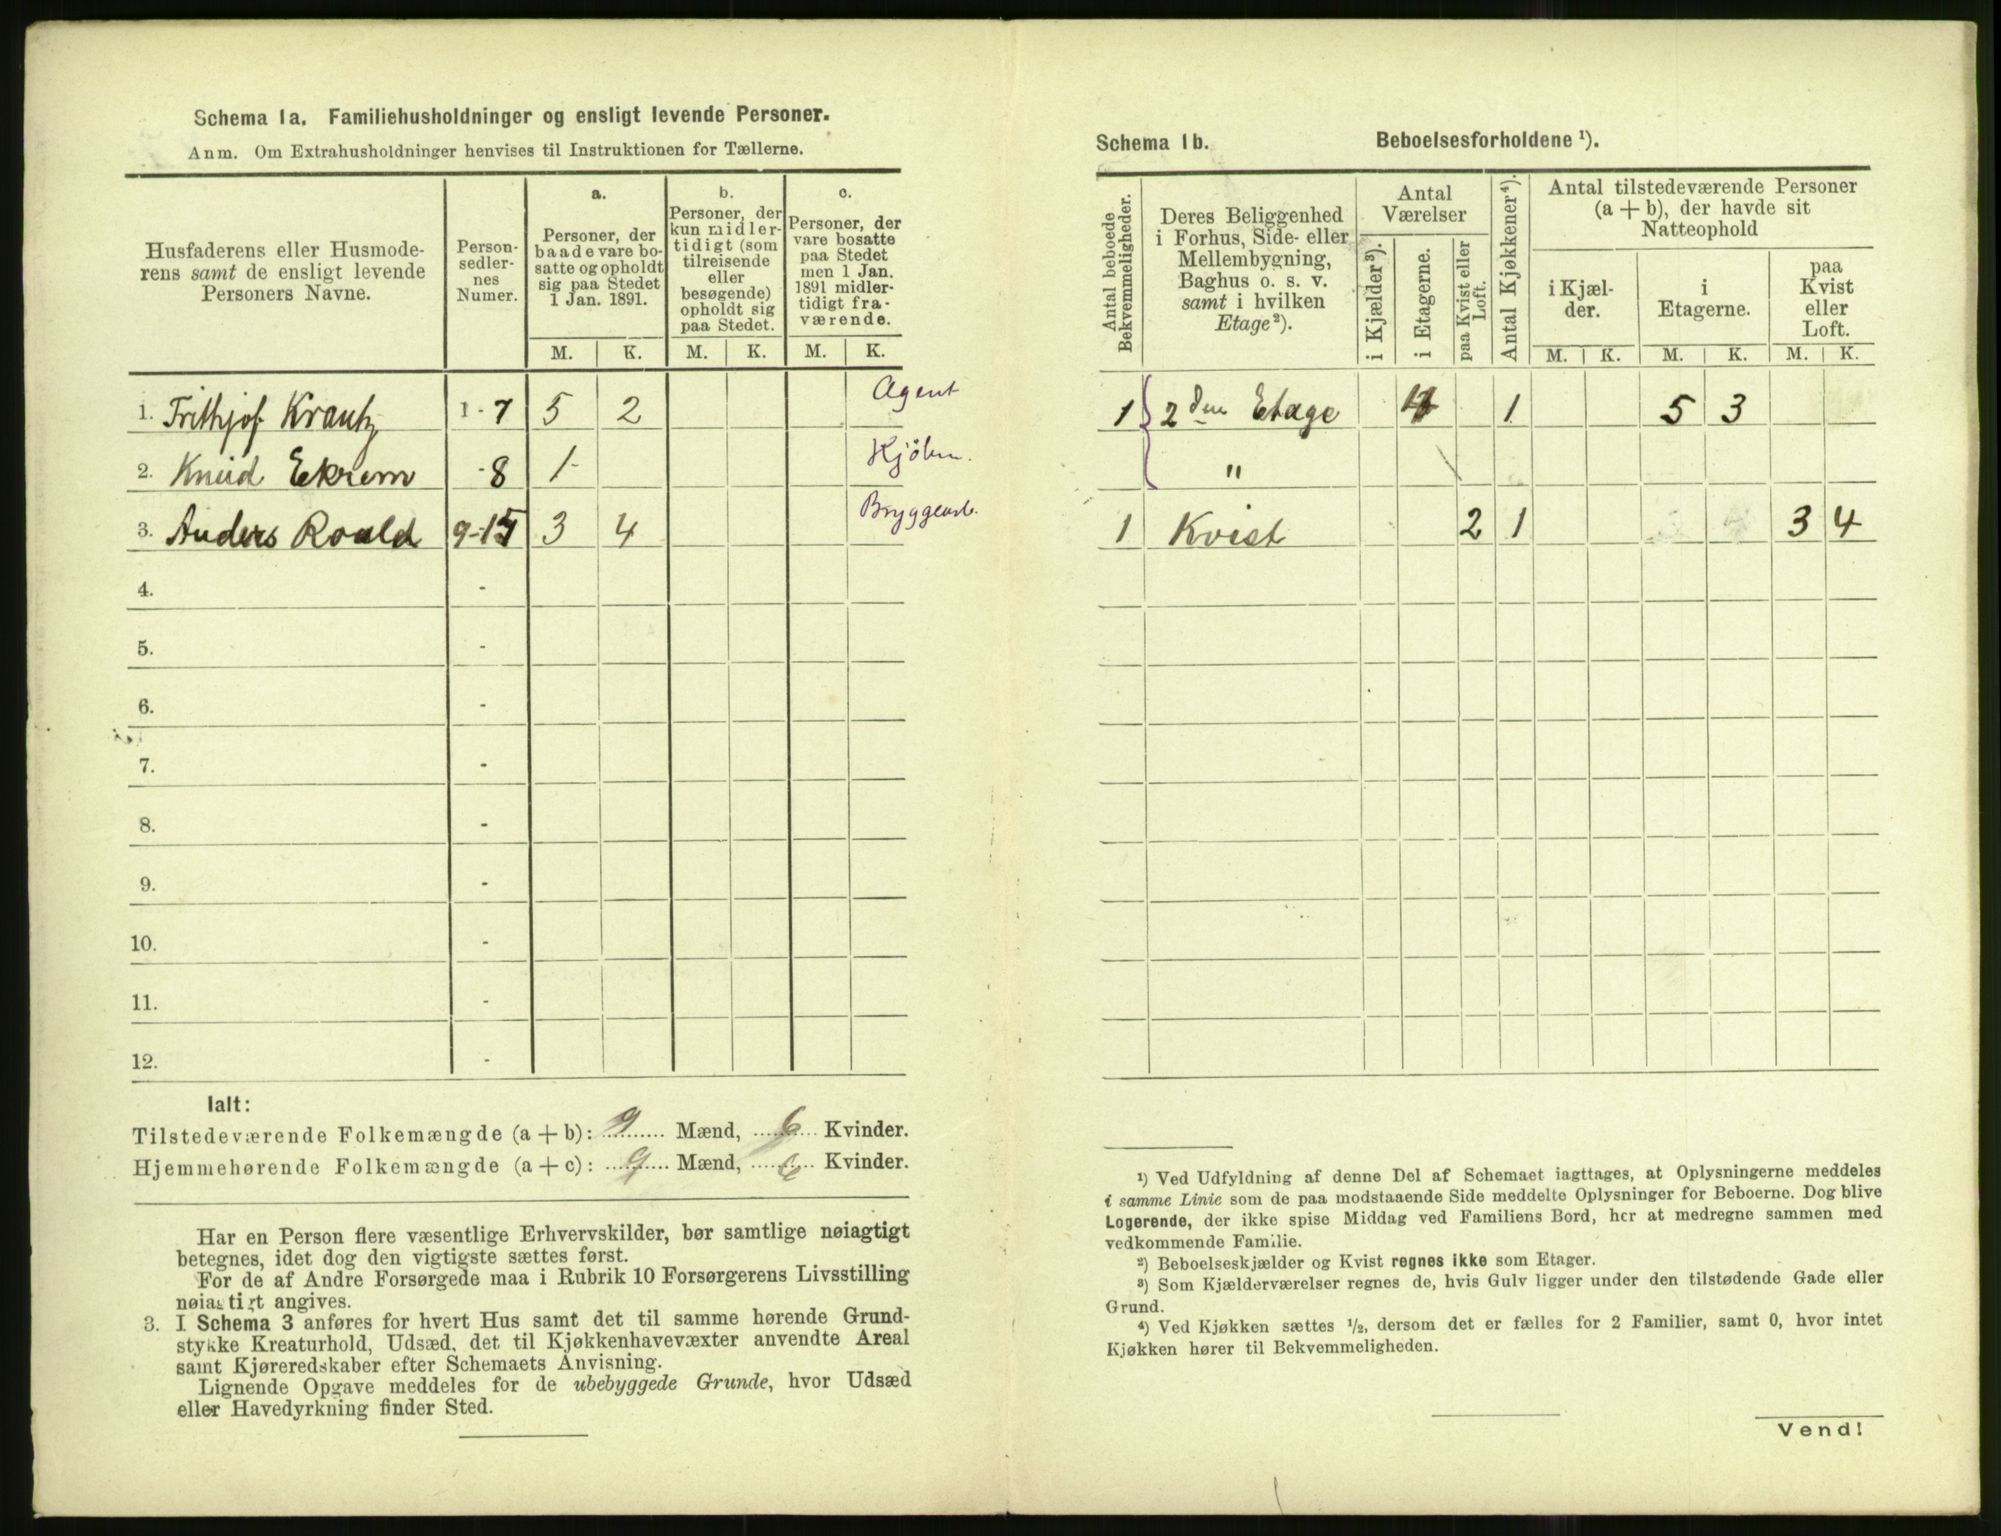 Schema 1a. Familiehusholdninger og ensligt levende Personer.
Anm. Om Extrahusholdninger henvises til Instruktionen for Tællerne.
Husfaderens eller Husmoderens samt de ensligt levende Personers Navne.
Person-
sedler-
nes
Numer.
a.
Personer, der
baade vare bo-
satte og opholdt
sig paa Stedet
1 Jan. 1891.
b.
Personer, der
kun midler-
tidigt (som
tilreisende
eller
besøgende)
opholdt sig
paa Stedet.
c.
Personer, der
vare bosatte
paa Stedet
men 1 Jan.
1891 midler-
tidigt fra-
værende.
M. K. M. K. M. K.
1. Frithjof Krantz 1-7 5 2 Agent
2. Knud Ekrem -8 1- Kjøbm.
3. Anders Roald 9-15 3 4 Bryggearb.
4. -
5. -
6. -
7. -
8. -
9. -
10. -
11. -
12. -
Ialt:
Tilstedeværende Folkemængde (a + b): 9 Mænd, 6 Kvinder.
Hjemmehørende Folkemængde (a + c): 9 Mænd, 6 Kvinder.
Har en Person flere væsentlige Erhvervskilder, bør samtlige nøiagtigt
betegnes, idet dog den vigtigste sættes først.
For de af Andre Forsørgede maa i Rubrik 10 Forsørgerens Livsstilling
nøiagtigt angives.
3. I Schema 3 anføres for hvert Hus samt det til samme hørende Grund-
stykke Kreaturhold, Udsæd, det til Kjøkkenhavevæxter anvendte Areal
samt Kjøreredskaber efter Schemaets Anvisning.
Lignende Opgave meddeles for de ubebyggede Grunde, hvor Udsæd
eller Havedyrkning finder Sted.
Schema 1b. Beboelsesforholdene ¹).
Antal beboede
Bekvemmeligheder.
Deres Beliggenhed
i Forhus, Side- eller
Mellembygning,
Baghus o. s. v.
samt i hvilken
Etage ²).
Antal
Værelser
i Kjælder ³).
i Etagerne.
paa Kvist eller
Loft.
Antal Kjøkkener ⁴).
Antal tilstedeværende Personer
(a + b), der havde sit
Natteophold
i Kjæl-
der.
i
Etagerne.
paa
Kvist
eller
Loft.
M. K. M. K. M. K.
1 2den Etage 1 5 3
"
1 Kvist 2 1 3 4
¹) Ved Udfyldning af denne Del af Schemaet iagttages, at Oplysningerne meddeles
i samme Linie som de paa modstaaende Side meddelte Oplysninger for Beboerne. Dog blive
Logerende, der ikke spise Middag ved Familiens Bord, her at medregne sammen med
vedkommende Familie.
²) Beboelseskjælder og Kvist regnes ikke som Etager.
³) Som Kjælderværelser regnes de, hvis Gulv ligger under den tilstødende Gade eller
Grund.
⁴) Ved Kjøkken sættes ½, dersom det er fælles for 2 Familier, samt 0, hvor intet
Kjøkken hører til Bekvemmeligheden.
Vend!